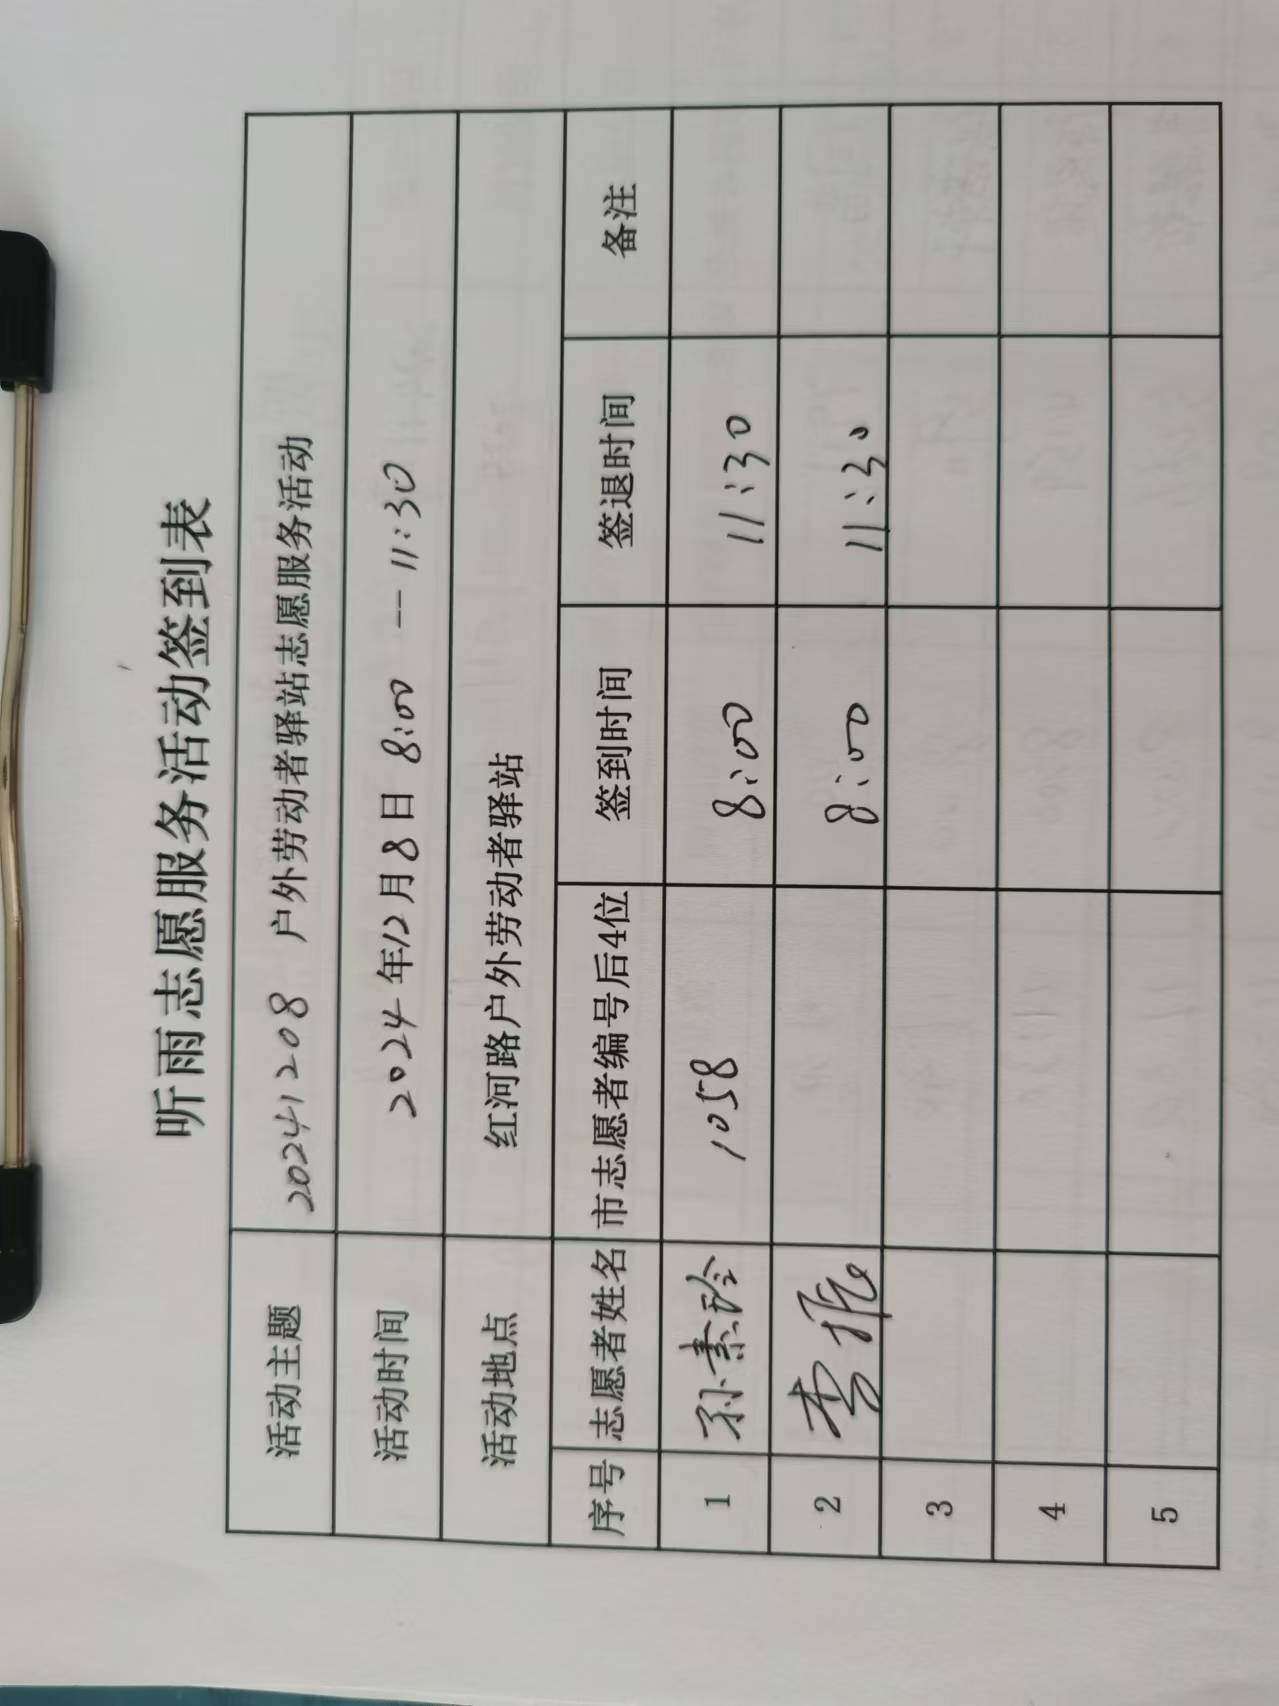 听雨志愿服务活动签到表
活动主题 20241208 户外劳动者驿站志愿服务活动
活动时间 2024年12月8日 8:00 -- 11:30
活动地点 红河路户外劳动者驿站
序号 志愿者姓名 市志愿者编号后4位 签到时间 签退时间 备注
1 孙素玲 1058 8:00 11:30
2 李振 8:00 11:30
3
4
5